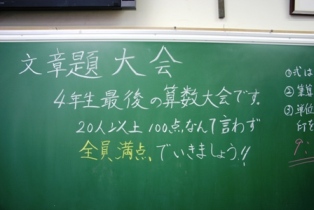 文章題大会
4年生最後の算数大会です。
20人以上100点なんて言わず
全員満点でいきましょう!!
①式は
②
③単位
9: